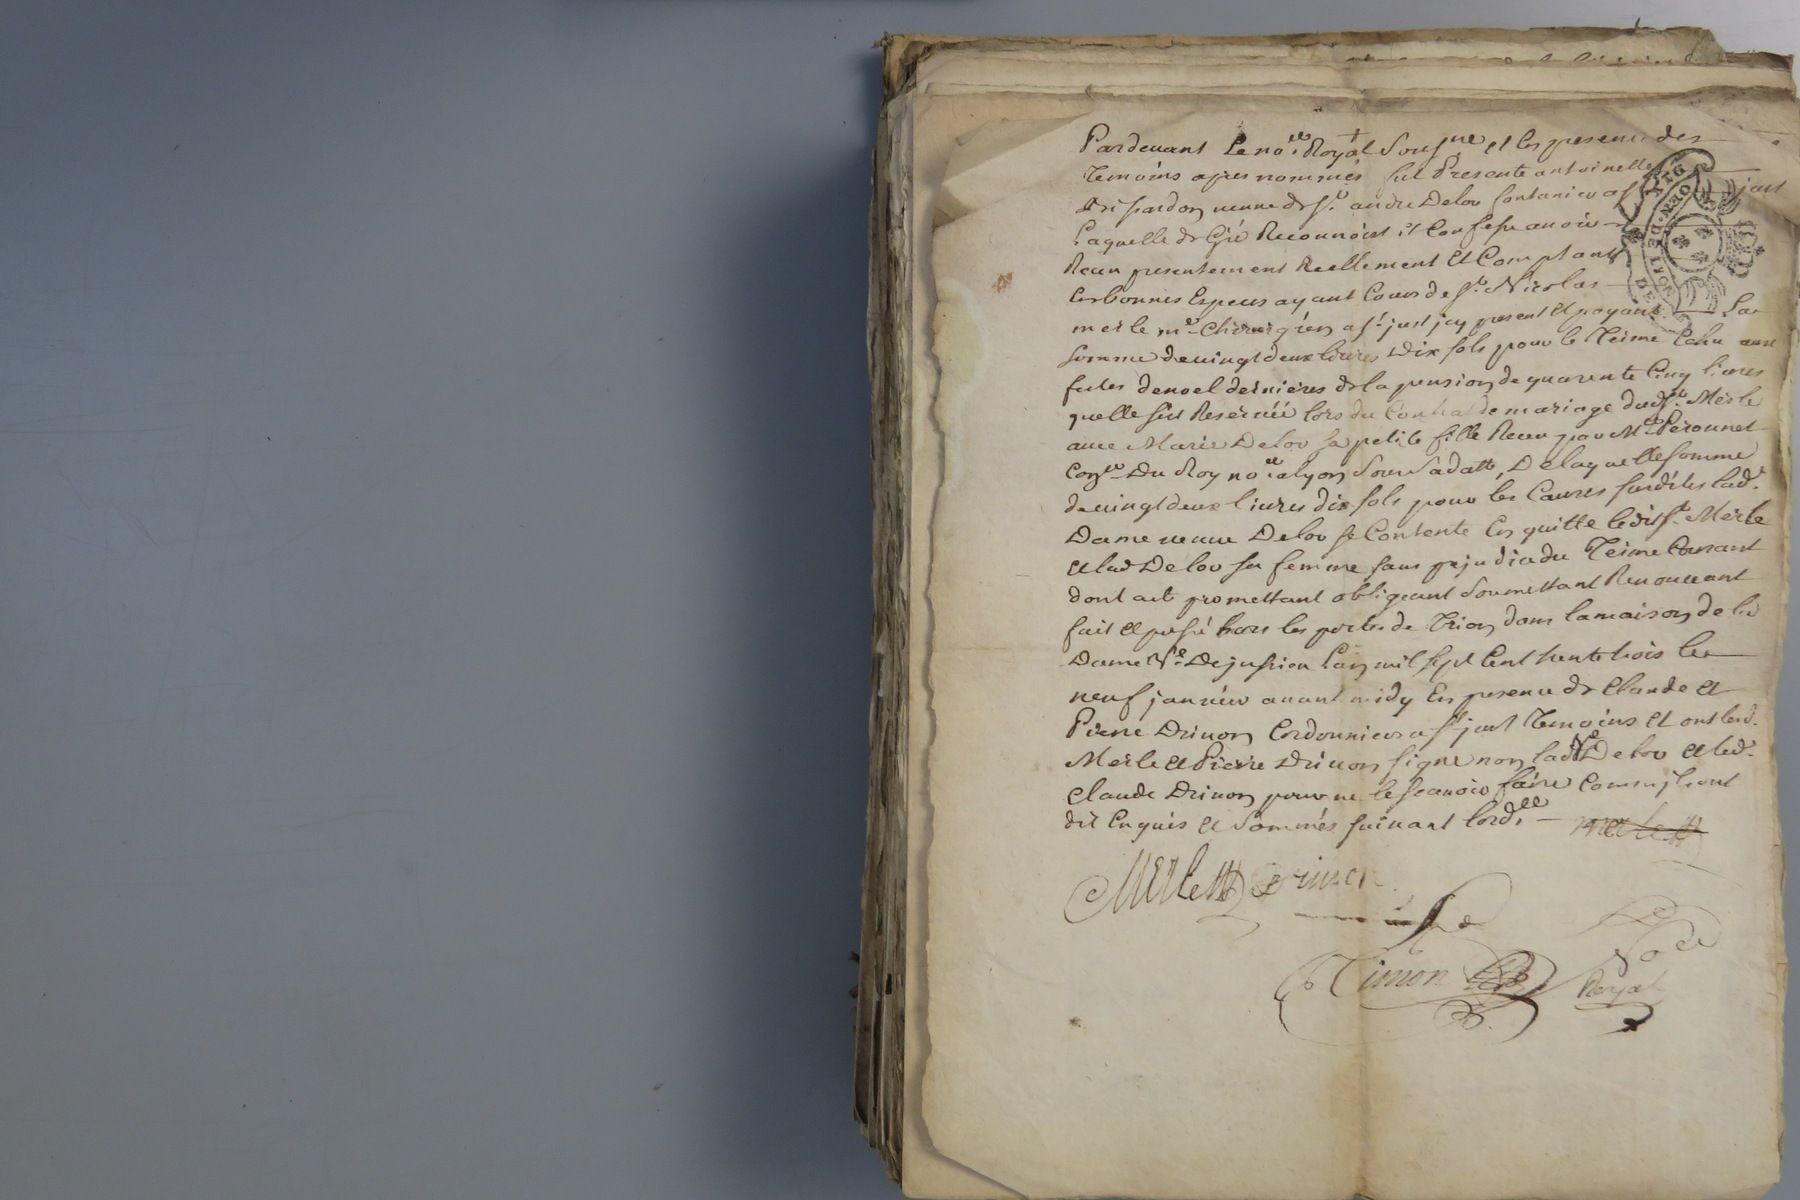 Pardevant Le no.re Royal Sousne et les presence des
Temoins apres nommés fut Presente antoinette
veuve de Sr. andre Delor fontanier a St just
Laquelle de Gré Reconnoist et Confesse avoir
Receu presentement Reellement Et Comptant
En bonnes Especes ayant Cours de Sr. Nicolas
merle me. Chirurgien a St. just icy present et payant La
somme de vingt deux livres Dix sols pour le Terme Echu aux
festes de noel dernieres de la pension de quarente Cinq livres
quelle sest Reservéé lors du Contrat de mariage dud Sr. Merle
avec Marie Delor sa petite fille Receu par Me Peronnet
Conser Du Roy no.re a lyon sous sa datte, De laquelle somme
de vingt deux livres dix sols pour les Causes susdites lad.
Dame veuve Delor se Contente En quitte ledit Sr. Merle
et lad Delor sa femme sans prejudice du Terme Courant
dont acte promettant obligeant soumettant Renonceant
fait et passé hors les portes de Trion dans la maison de la
Dame Ve. Dejussieu Lan mil sept Cent trente trois le
neuf janvier avant midy En presence de Claude et
Pierre Drivon Cordonniers a St just Temoins et ont led.
Merle et Pierre Drivon signe non lad Ve Delor et led.
Claude Drivon pour ne le scavoir faire Comme ils ont
dit Enquis et sommés suivant lord.ce merle
Merle Drivon
Timon No.re
Royal
DE LYON